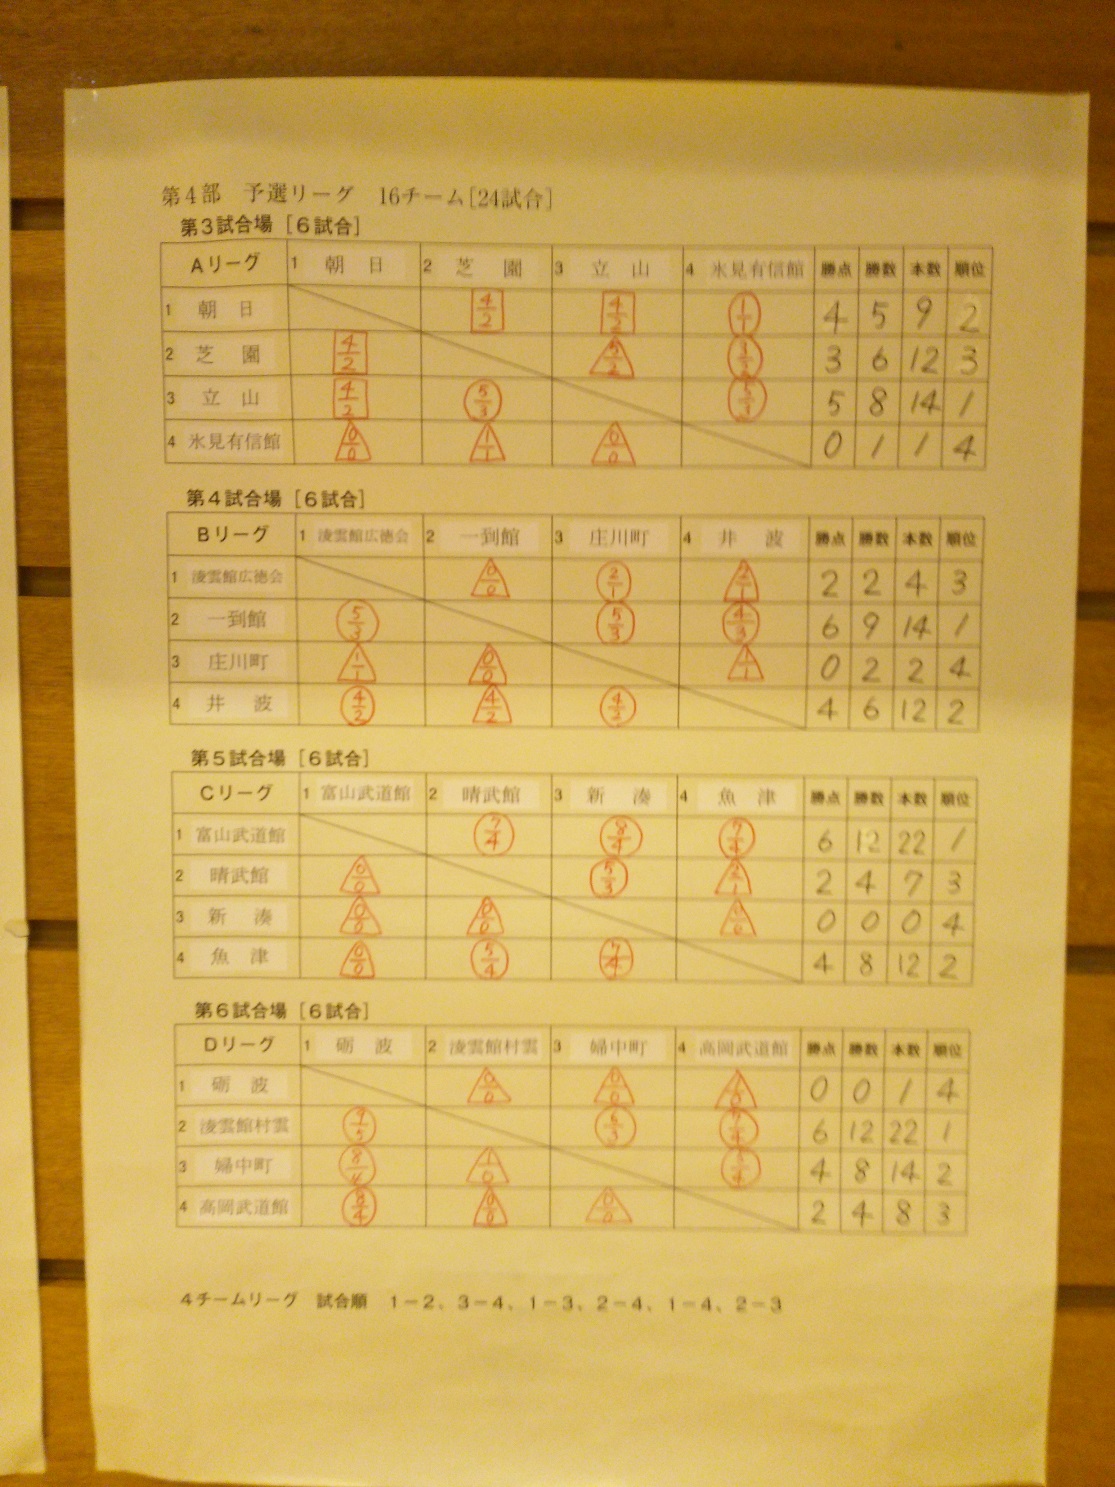 第4部 予選リーグ 16チーム[24試合]
第3試合場 [6試合]
Aリーグ 1 朝日 2 芝園 3 立山 4 氷見有信館 勝点 勝数 本数 順位
1 朝日 4/2 4/2 1/1 4 5 9 2
2 芝園 4/2 3 6 12 3
3 立山 4/2 5/3 5/3 5 8 14 1
4 氷見有信館 0/0 1/1 0/0 0 1 1 4
第4試合場 [6試合]
Bリーグ 1 凌雲館広徳会 2 一到館 3 庄川町 4 井波 勝点 勝数 本数 順位
1 凌雲館広徳会 0/0 2/1 2/1 2 2 4 3
2 一到館 5/3 5/3 4/3 6 9 14 1
3 庄川町 1/1 0/0 1/1 0 2 2 4
4 井波 4/2 4/2 4/2 4 6 12 2
第5試合場 [6試合]
Cリーグ 1 富山武道館 2 晴武館 3 新湊 4 魚津 勝点 勝数 本数 順位
1 富山武道館 7/4 8/4 7/4 6 12 22 1
2 晴武館 0/0 5/3 2/1 2 4 7 3
3 新湊 0/0 0/0 0/0 0 0 0 4
4 魚津 0/0 5/4 7/4 4 8 12 2
第6試合場 [6試合]
Dリーグ 1 砺波 2 凌雲館村雲 3 婦中町 4 高岡武道館 勝点 勝数 本数 順位
1 砺波 0/0 0/0 1/0 0 0 1 4
2 凌雲館村雲 9/5 6/3 6 12 22 1
3 婦中町 8/4 1/0 4 8 14 2
4 高岡武道館 8/4 0/0 0/0 2 4 8 3
4チームリーグ 試合順 1－2、3－4、1－3、2－4、1－4、2－3